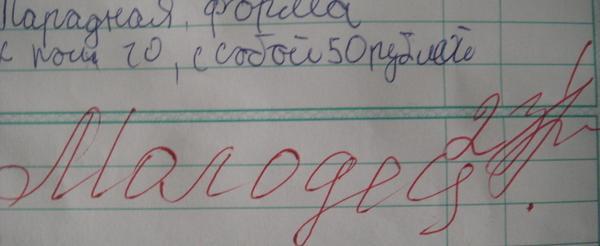 Парадная форма
к 10, с собой 50 рублей
Малодец